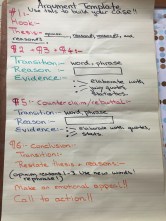 Argument Template
Use this to build your case!!
#1:
Hook-
Thesis- opinion, reason1, reason2, and
reason3.
#2 + #3 + #4:
Transition: word, phrase
Reason:
Evidence: elaborate with
your quotes
#5: Counterclaim/rebuttal:
Transition- word, phrase
Reason-
Evidence: elaborate w/
quotes
#6- Conclusion:
Transition:
Restate thesis + reasons-
(opinion, reasons) use new words
rephrase
Make an emotional appeal!!
Call to action!!